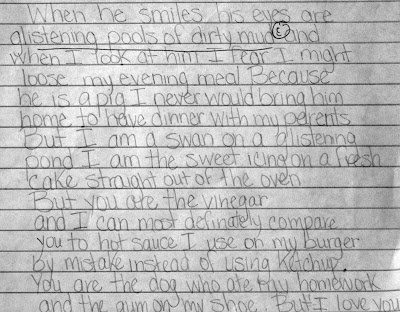 When he smiles his eyes are
glistening pools of dirty mud and
when I look at him I fear I might
loose my evening meal Because
he is a pig I never would bring him
home to have dinner with my parents
But I am a swan on a glistening
pond I am the sweet icing on a fresh
cake straight out of the oven
But you are the vinegar
and I can most definately compare
you to hot sauce I use on my burger
by mistake instead of using Ketchup
You are the dog who ate my homework
and the gum on my shoe. But I love you